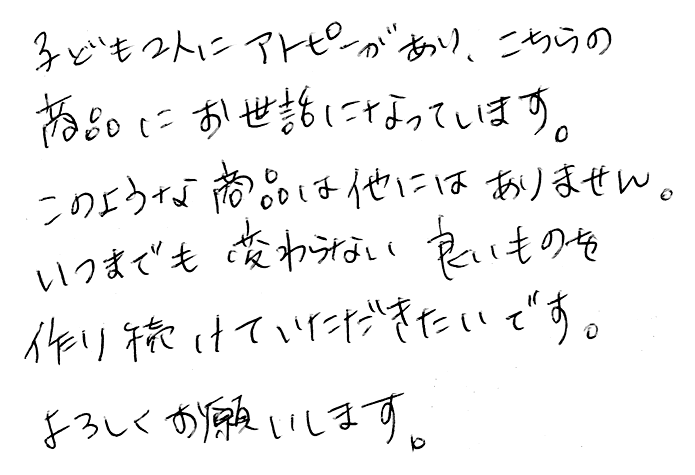 子ども2人にアトピーがあり、こちらの
商品にお世話になっています。
このような商品は他にはありません。
いつまでも変わらない良いものを
作り続けていただきたいです。
よろしくお願いします。